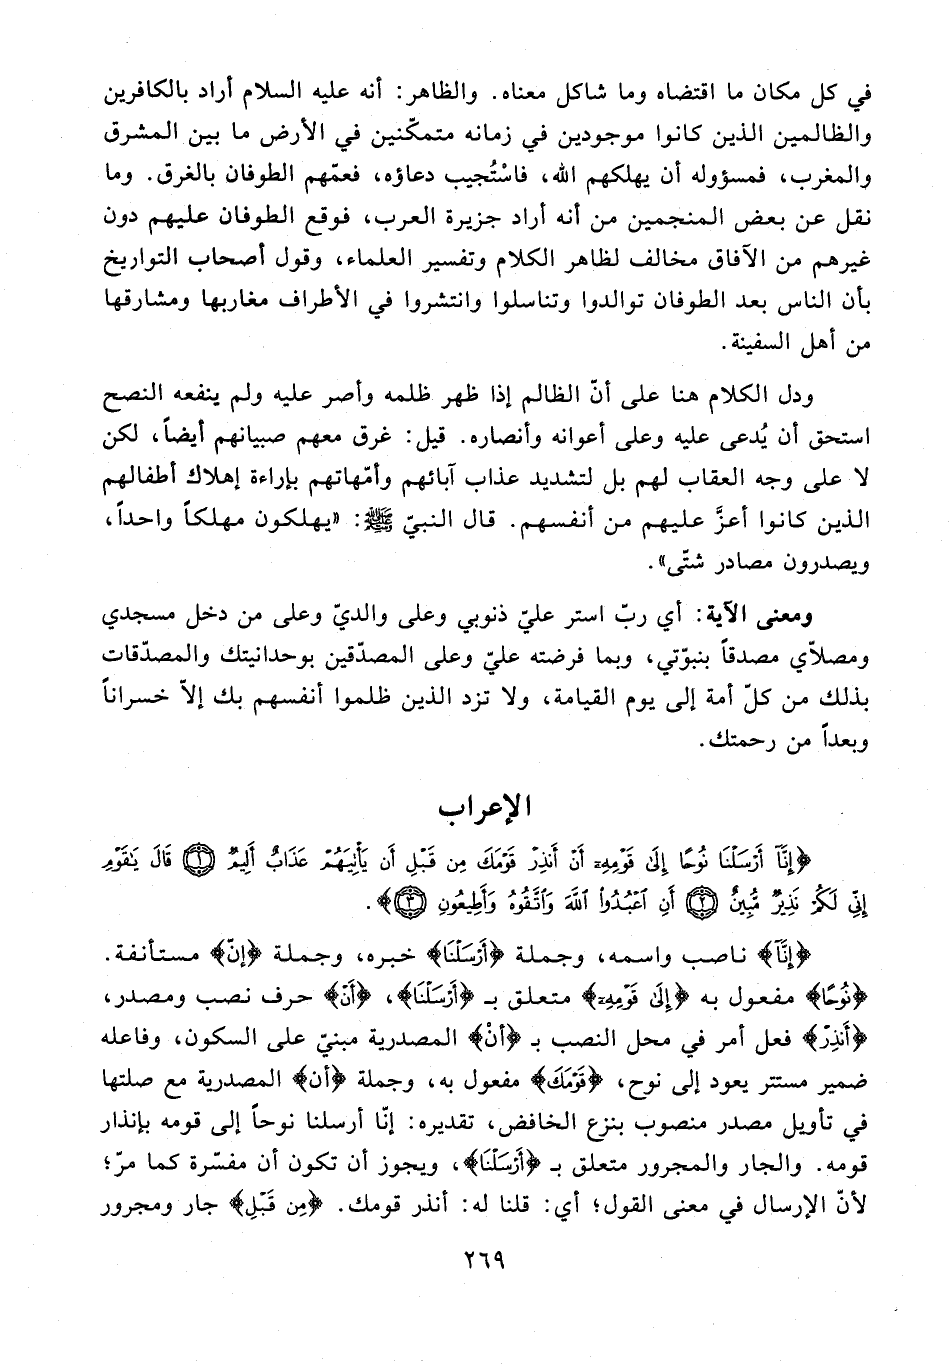 في كل مكان ما اقتضاه وما شاكل معناه. والظاهر: أنه عليه السلام أراد بالكافرين
والظالمين الذين كانوا موجودين في زمانه متمكّنين في الأرض ما بين المشرق
والمغرب، فمسؤوله أن يهلكهم الله، فاسْتُجيب دعاؤه، فعمّهم الطوفان بالغرق. وما
نقل عن بعض المنجمين من أنه أراد جزيرة العرب، فوقع الطوفان عليهم دون
غيرهم من الآفاق مخالف لظاهر الكلام وتفسير العلماء، وقول أصحاب التواريخ
بأن الناس بعد الطوفان توالدوا وتناسلوا وانتشروا في الأطراف مغاربها ومشارقها
من أهل السفينة.
ودل الكلام هنا على أنّ الظالم إذا ظهر ظلمه وأصر عليه ولم ينفعه النصح
استحق أن يُدعى عليه وعلى أعوانه وأنصاره. قيل: غرق معهم صبيانهم أيضاً، لكن
لا على وجه العقاب لهم بل لتشديد عذاب آبائهم وأمّهاتهم بإراءة إهلاك أطفالهم
الذين كانوا أعزَّ عليهم من أنفسهم. قال النبيّ ﷺ: «يهلكون مهلكاً واحداً،
ويصدرون مصادر شتّى».
ومعنى الآية: أي ربّ استر عليّ ذنوبي وعلى والديّ وعلى من دخل مسجدي
ومصلاّي مصدقاً بنبوّتي، وبما فرضته عليّ وعلى المصدّقين بوحدانيتك والمصدّقات
بذلك من كلّ أمة إلى يوم القيامة، ولا تزد الذين ظلموا أنفسهم بك إلاّ خسراناً
وبعداً من رحمتك.
الإعراب
﴿إِنَّآ أَرْسَلْنَا نُوحًا إِلَىٰ قَوْمِهِۦٓ أَنْ أَنذِرْ قَوْمَكَ مِن قَبْلِ أَن يَأْنِيَهُمْ عَذَابٌ أَلِيمٌ ۝١ قَالَ يَٰقَوْمِ
إِنِّي لَكُمْ نَذِيرٌ مُّبِينٌ ۝٢ أَنِ ٱعْبُدُواْ ٱللَّهَ وَٱتَّقُوهُ وَأَطِيعُونِ ۝٣﴾.
﴿إِنَّآ﴾ ناصب واسمه، وجملة ﴿أَرْسَلْنَا﴾ خبره، وجملة ﴿إنّ﴾ مستأنفة.
﴿نُوحًا﴾ مفعول به ﴿إِلَىٰ قَوْمِهِۦٓ﴾ متعلق بـ ﴿أَرْسَلْنَا﴾، ﴿أَنْ﴾ حرف نصب ومصدر،
﴿أَنذِرْ﴾ فعل أمر في محل النصب بـ ﴿أنْ﴾ المصدرية مبنيّ على السكون، وفاعله
ضمير مستتر يعود إلى نوح، ﴿قَوْمَكَ﴾ مفعول به، وجملة ﴿أن﴾ المصدرية مع صلتها
في تأويل مصدر منصوب بنزع الخافض، تقديره: إنّا أرسلنا نوحاً إلى قومه بإنذار
قومه. والجار والمجرور متعلق بـ ﴿أَرْسَلْنَا﴾، ويجوز أن تكون أن مفسّرة كما مرّ؛
لأنّ الإرسال في معنى القول؛ أي: قلنا له: أنذر قومك. ﴿مِن قَبْلِ﴾ جار ومجرور
٢٦٩